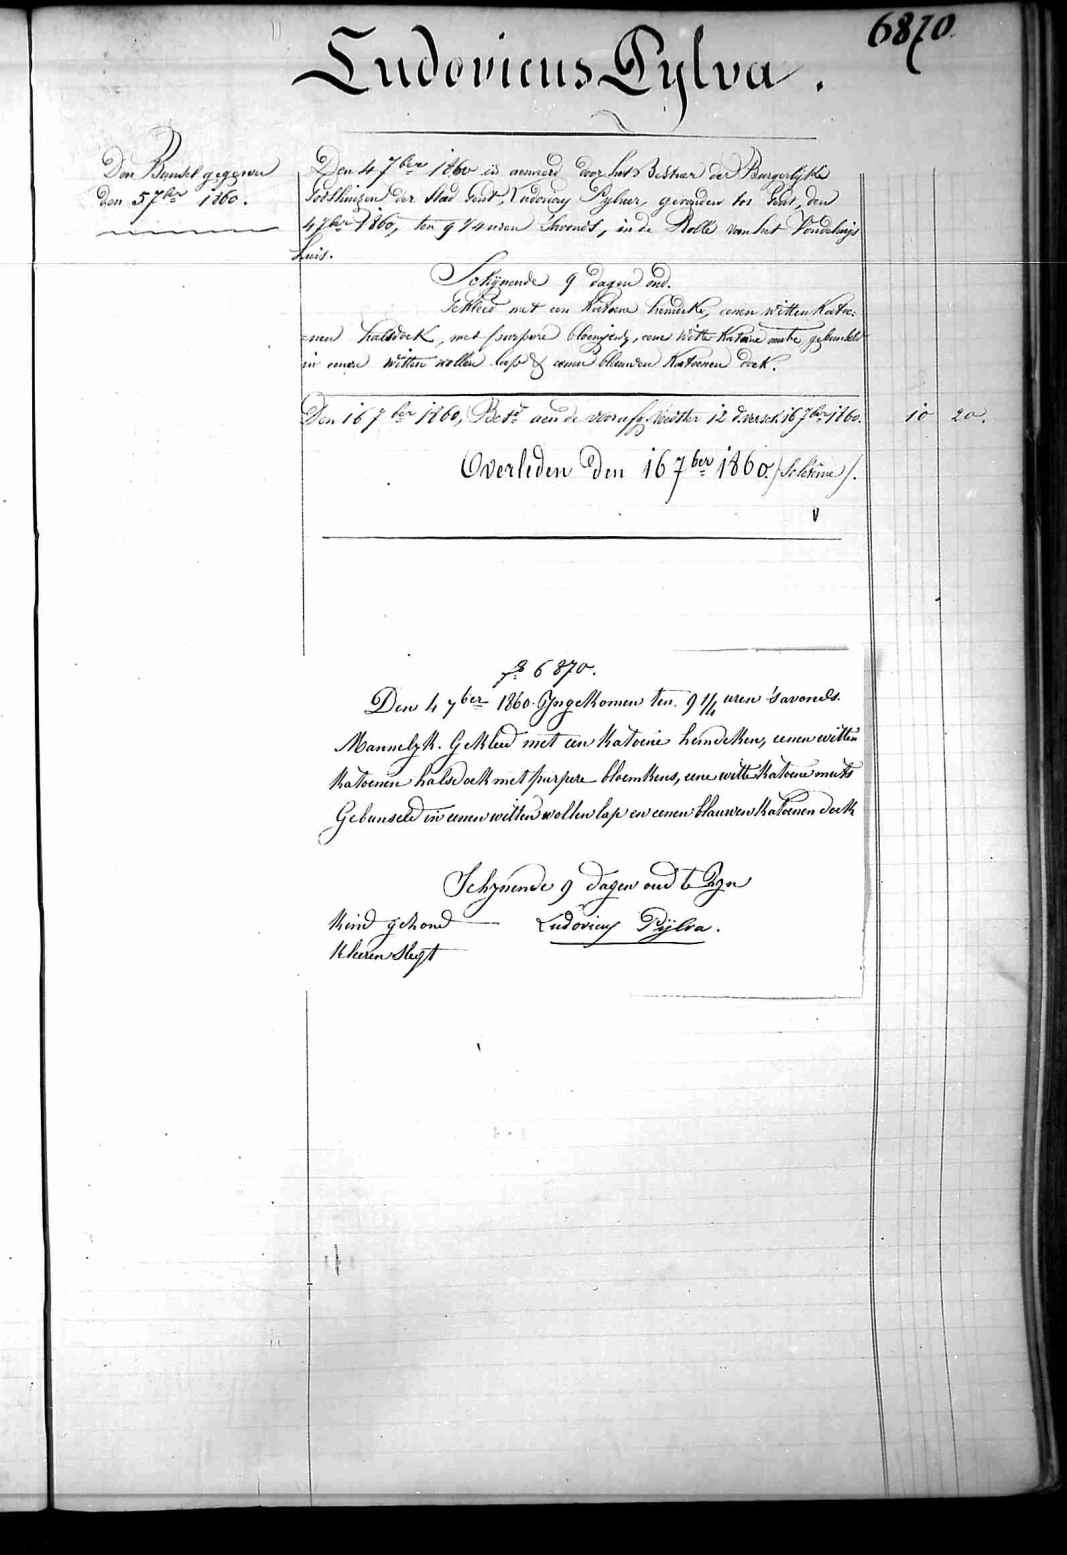 6870.
Ludovicus Pylva.
Den Bunsel gegeven
den 5 7ber 1860.
Den 4 7ber 1860 is aenveerd door het Bestuer der Burgerlijke
Godshuizen der Stad Gent, Ludovicus gevonden tot Gent, den
4 7ber 1860, ten 9 1/4 uren 'savonds, in de Rolle van het Vondelings
huis.
Schijnende 9 dagen oud.
Gekleed met een katoene hemdeke, eenen witten katoe-
=nen halsdoek, met purpere bloemjens, eene witte katoene muts gebunseld
in eenen witten wollen lap & eenen blauwen katoenen doek.
Den 16 7ber 1860, Bet.d aen de voorsz. 12 d. 16 7ber 1860. 10 20.
Overleden den 16 7ber 1860.
v
f° 6870.
Den 4 7ber 1860. Yngekomen ten 9 1/4 uren 'savonds.
Mannelyk. Gekleed met een katoene hemdeken, eenen witten
katoenen halsdoek met purpere bloemkens, eene witte katoene muts
Gebunseld in eenen witten wollen lap en eenen blauwen katoenen doek
Schynende 9 dagen oud te Zyn
Kind gezond — Ludovicus Pÿlva.
Kleeren slegt